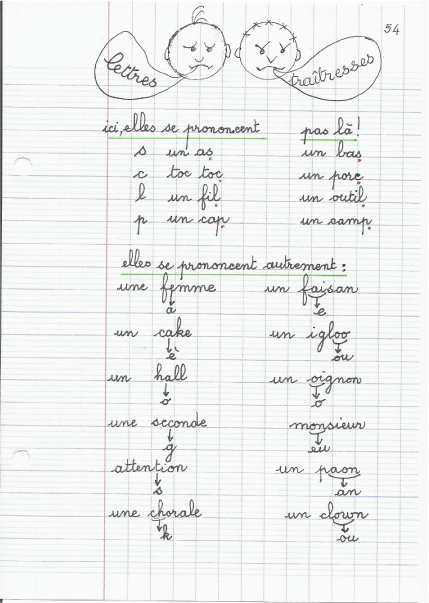 54
lettres traîtresses
ici, elles se prononcent pas là !
s un as un bas
c toc toc un porc
l un fil un outil
p un cap un camp
elles se prononcent autrement :
une femme un faisan
a e
un cake un igloo
è ou
un hall un oignon
o o
une seconde monsieur
g eu
attention un paon
s an
une chorale un clown
k ou